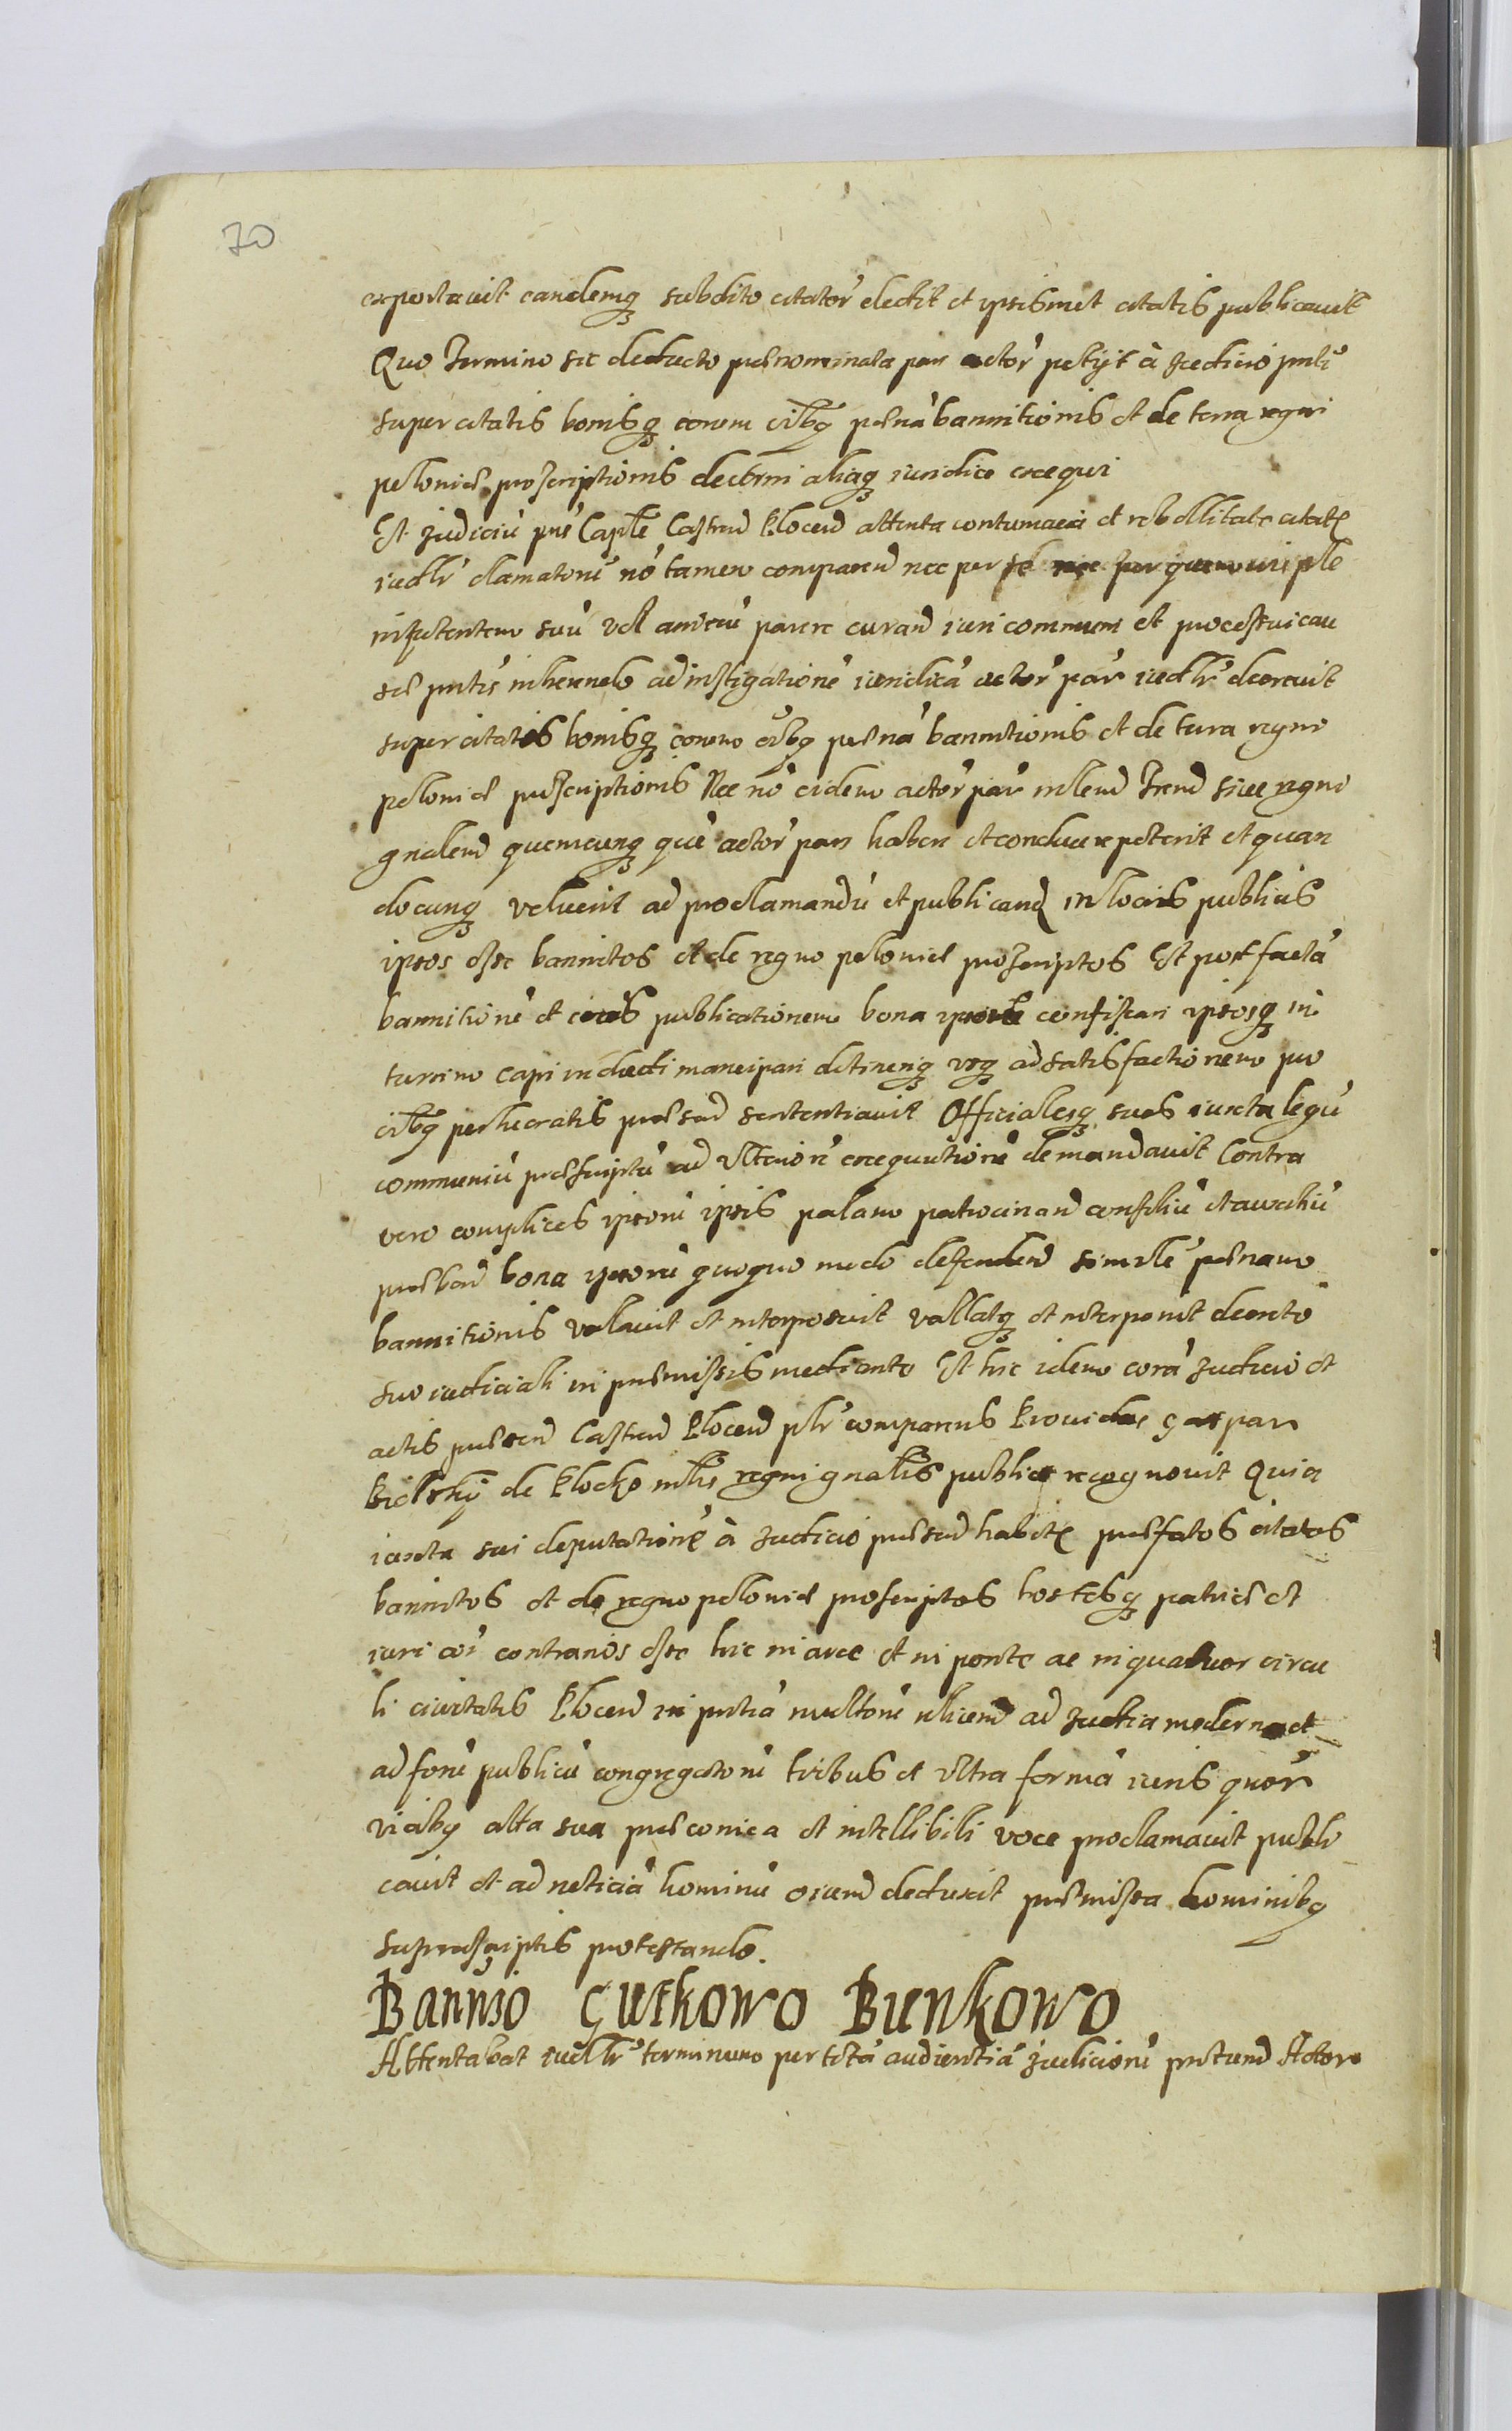 70
exportavit eandemq subdito citator dedit et ipsismet citatis publicavit
Quo Termino sic deducto praenominata pars actor petijt à Iudicio pnti
super citatis bonisq eorum oibq paena bannitionis et de terra regni
poloniae proscriptionis decerni aliaq iuridice exequi
Et Iudiciu pns Capitle Castren Plocen attenta contumacia et rebellitate citator
iudlr clamatoru no tamen comparen nec per se nec per quemvis ple
nipotentem suu vel amicu parere curan iuri communi et processui cau
sae pntis inherendo ad instigatione iuridica actor par iudlr decrevit
super citatis bonisq eorum oibq paena bannitionis et de terra regni
poloniae proscriptionis Nec no eidem actor par mlem Trem sive regni
gnalem quemcunq que actor pars habere et conducere poterit et quan
docunq voluerit ad proclamandu et publicand in locis publicis
ipsos esse bannitos et de regno poloniae proscriptos Et post facta
bannitione et eius publicationem bona ipsoru confiscari ipsosq in
turrim capi includi mancipari detineriq usq ad satisfactionem pro
oibq perlucratis praesen sententiavit Officialesq suos iuxta legu
communiu praescriptu ad ulteriore exequutione demandavit Contra
vero complices ipsoru ipsis palam patrocinan consiliu et auxiliu
praeben bona ipsoru quoquo modo defenden simile paenam
bannitionis vallavit et interposuit vallatq et interponit decreto
suo iudiciali in praemissis mediante Et hic idem cora Iudicio et
actis praesen Castren Plocen plr comparens Providus gaspar
Bielski de Plocko mlis regni gnalis publice recognovit Quia
iuxta sui deputatione à Iudicio praesen habite praefatos citatos
bannitos et de regno poloniae proscriptos hostesq patriae et
iuri coi contrarios esse hic in arce et in ponte ac in quatuor circu
li civitatis Plocen in pntia multoru nobiliu ad Iudicia moderna et
ad foru publicu congregatoru tribus et ultra forma iuris quor
vicibq alta sua praeconica et intellibili voce proclamavit publi
cavit et ad noticia hominu oium deduxit praemissa hominibq
suprascriptis protestando.
Bannio Gutkowo Bunkowo
Attentabat iudlr terminum per tota audientia Iudicioru pntium Actore